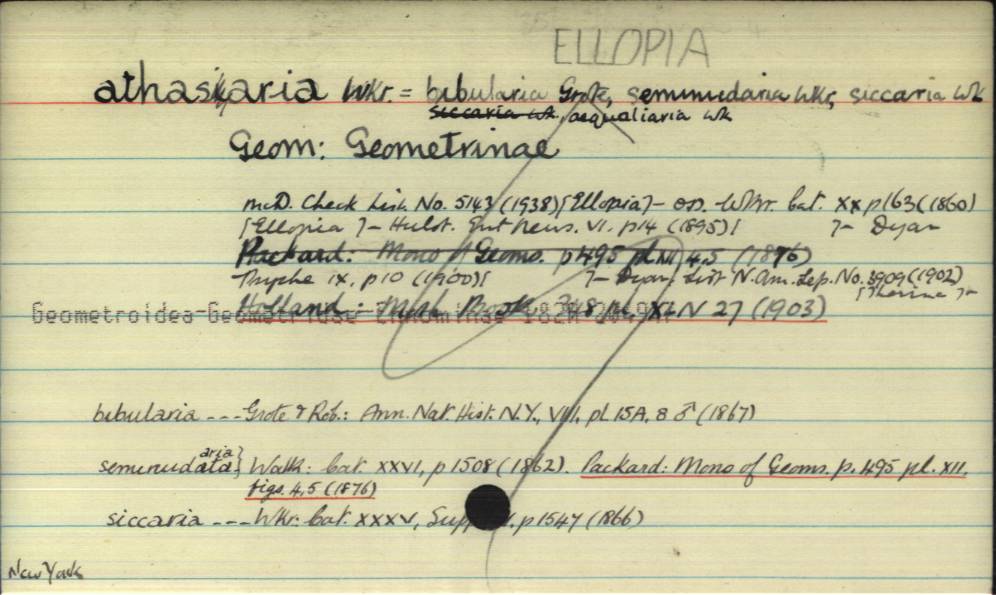 ELLOPIA
athaskaria Wkr. = bibularia Grote, seminudaria Wkr, siccaria Wk
siccaria Wk, aequaliaria Wk
Geom: Geometrinae
McD. Check List No. 5143 (1938) [Ellopia] - on. Wkr. Cat. XX p163 (1860)
[Ellopia] - Hulst. Ent News. VI. p14 (1895) ] - Dyar
Packard: Mono of Geoms. p495 pl XII 4,5 (1876)
Psyche IX, p10 (1900) ] - Dyar List N. Am. Lep. No. 3909 (1902)
[Therina] -
Holland: Moth Book 348 pl. XLIV 27 (1903)
Geometroidea-Geometridae Ennominae
bibularia --- Grote & Rob.: Ann. Nat. Hist. N.Y., VIII, pl. 15A, 8 ♂ (1867)
aria
seminudata} Walk: Cat. XXVI, p 1508 (1862). Packard: Mono of Geoms. p. 495 pl. XII.
figs. 4,5 (1876)
siccaria --- Wkr: Cat. XXXV, Supp. p1547 (1866)
New York